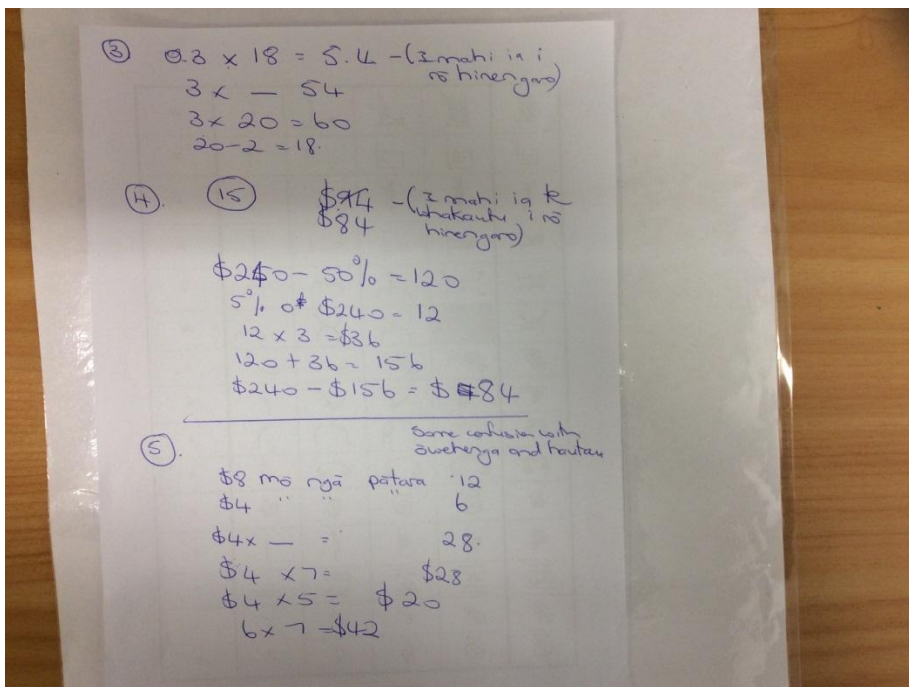 ③ 0.3 x 18 = 5.4 - (I mahi ia i
rō hinengaro)
3 x — 54
3 x 20 = 60
20-2 = 18.
④. ⑮ $94 - (I mahi ia te
$84 whakautu i rō
hinengaro)
$240 - 50% = 120
5% of $240 = 12
12 x 3 = $36
120 + 36 = 156
$240 - $156 = $84
Some confusion with
⑤. ōwehenga and hautau
$8 mō ngā pātara 12
$4 " " " 6
$4 x — = 28.
$4 x 7 = $28
$4 x 5 = $20
6 x 7 = $42